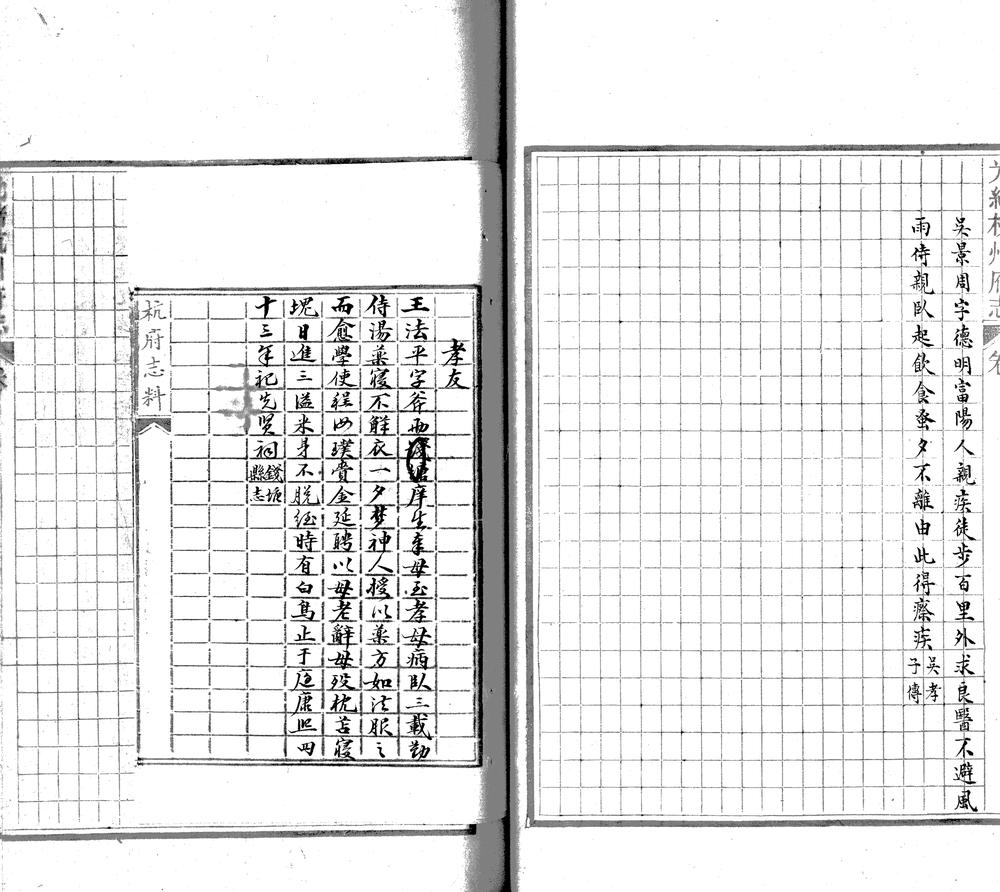 吳景周字德明富陽人親疾徒步百里外求良醫不避風
雨侍親臥起飲食蚤夕不離由此得瘵疾吳孝子傳
孝友
王法平字斧 庠生奉母至孝母病臥三載勤
侍湯藥寝不解衣一夕梦神人授以藥方如法服之
而愈學使程 璞賫金延聘以母老辭母歿枕苫寢
塊日進三溢米身不脫絰時有白鳥止于庭康熙四
十三年祀先贤祠錢塘縣志
杭府志料